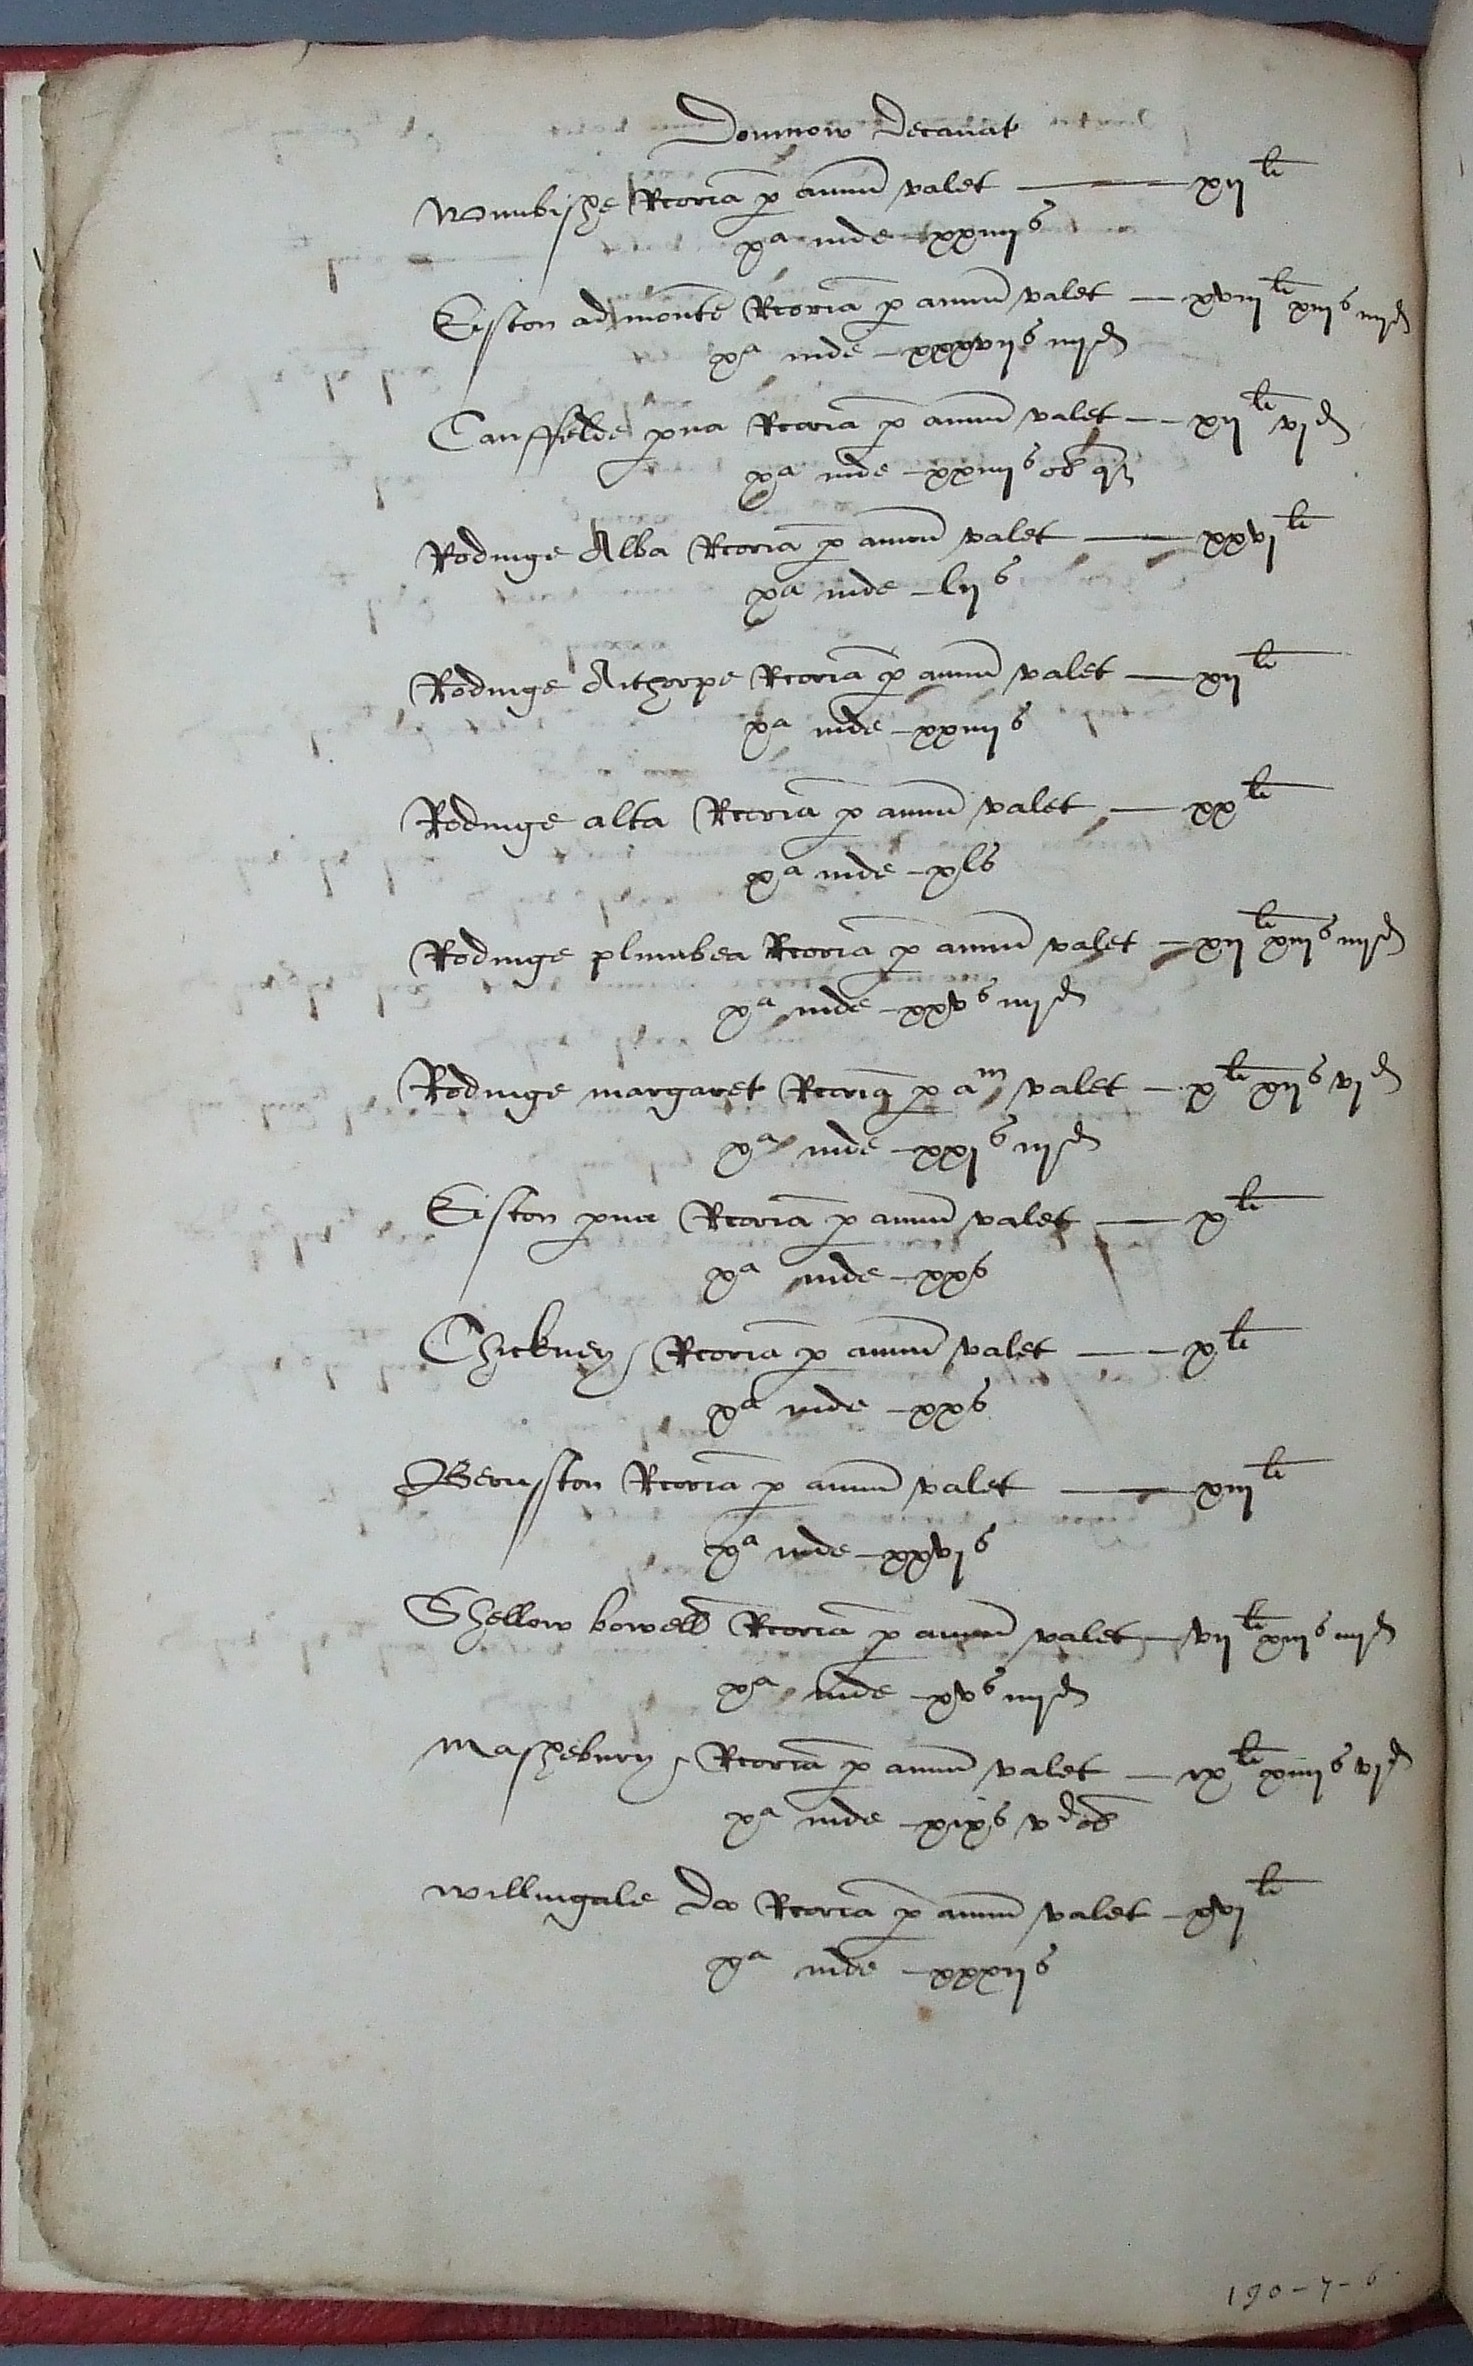 Donmow Decanat
Wimbishe Rcoria p annu valet — xij li
xa inde – xxiiij s
Eiston ad monte Rcoria p annu valet — xviij li xiij s iiij d
xa inde – xxxvij s iiij d
Canffelde pua Rcoria p annu valet — xij li vj d
xa inde – xxiiij s ob q
Rodinge Alba Rcoria p annu valet — xxvj li
xa inde – lij s
Rodinge Aithorpe Rcoria p annu valet — xij li
xa inde – xxiiij s
Rodinge alta Rcoria p annu valet — xx li
xa inde – xls
Rodinge plumbea Rcoria p annu valet – xij li xiij s iiij d
xa inde – xxv s iiij d
Rodinge margaret Rcoria p am valet – x li xij s vj d
xa inde – xxj s iij d
Eiston pua Rcoria p annu valet — x li
xa inde – xxs
Chickney Rcoria p annu valet — x li
xa inde – xxs
Bernston Rcoria p annu valet — xiij li
xa inde – xxvj s
Shellow bowell Rcoria p annu valet – vij li xiij s iiij d
xa inde – xv s iiij d
Mashebury Rcoria p annu valet — ix li xiiij s vij d
xa inde – xixs v d ob
Willingale Do Rcoria p annu valet – xvj li
xa inde – xxxij s
190-7-6